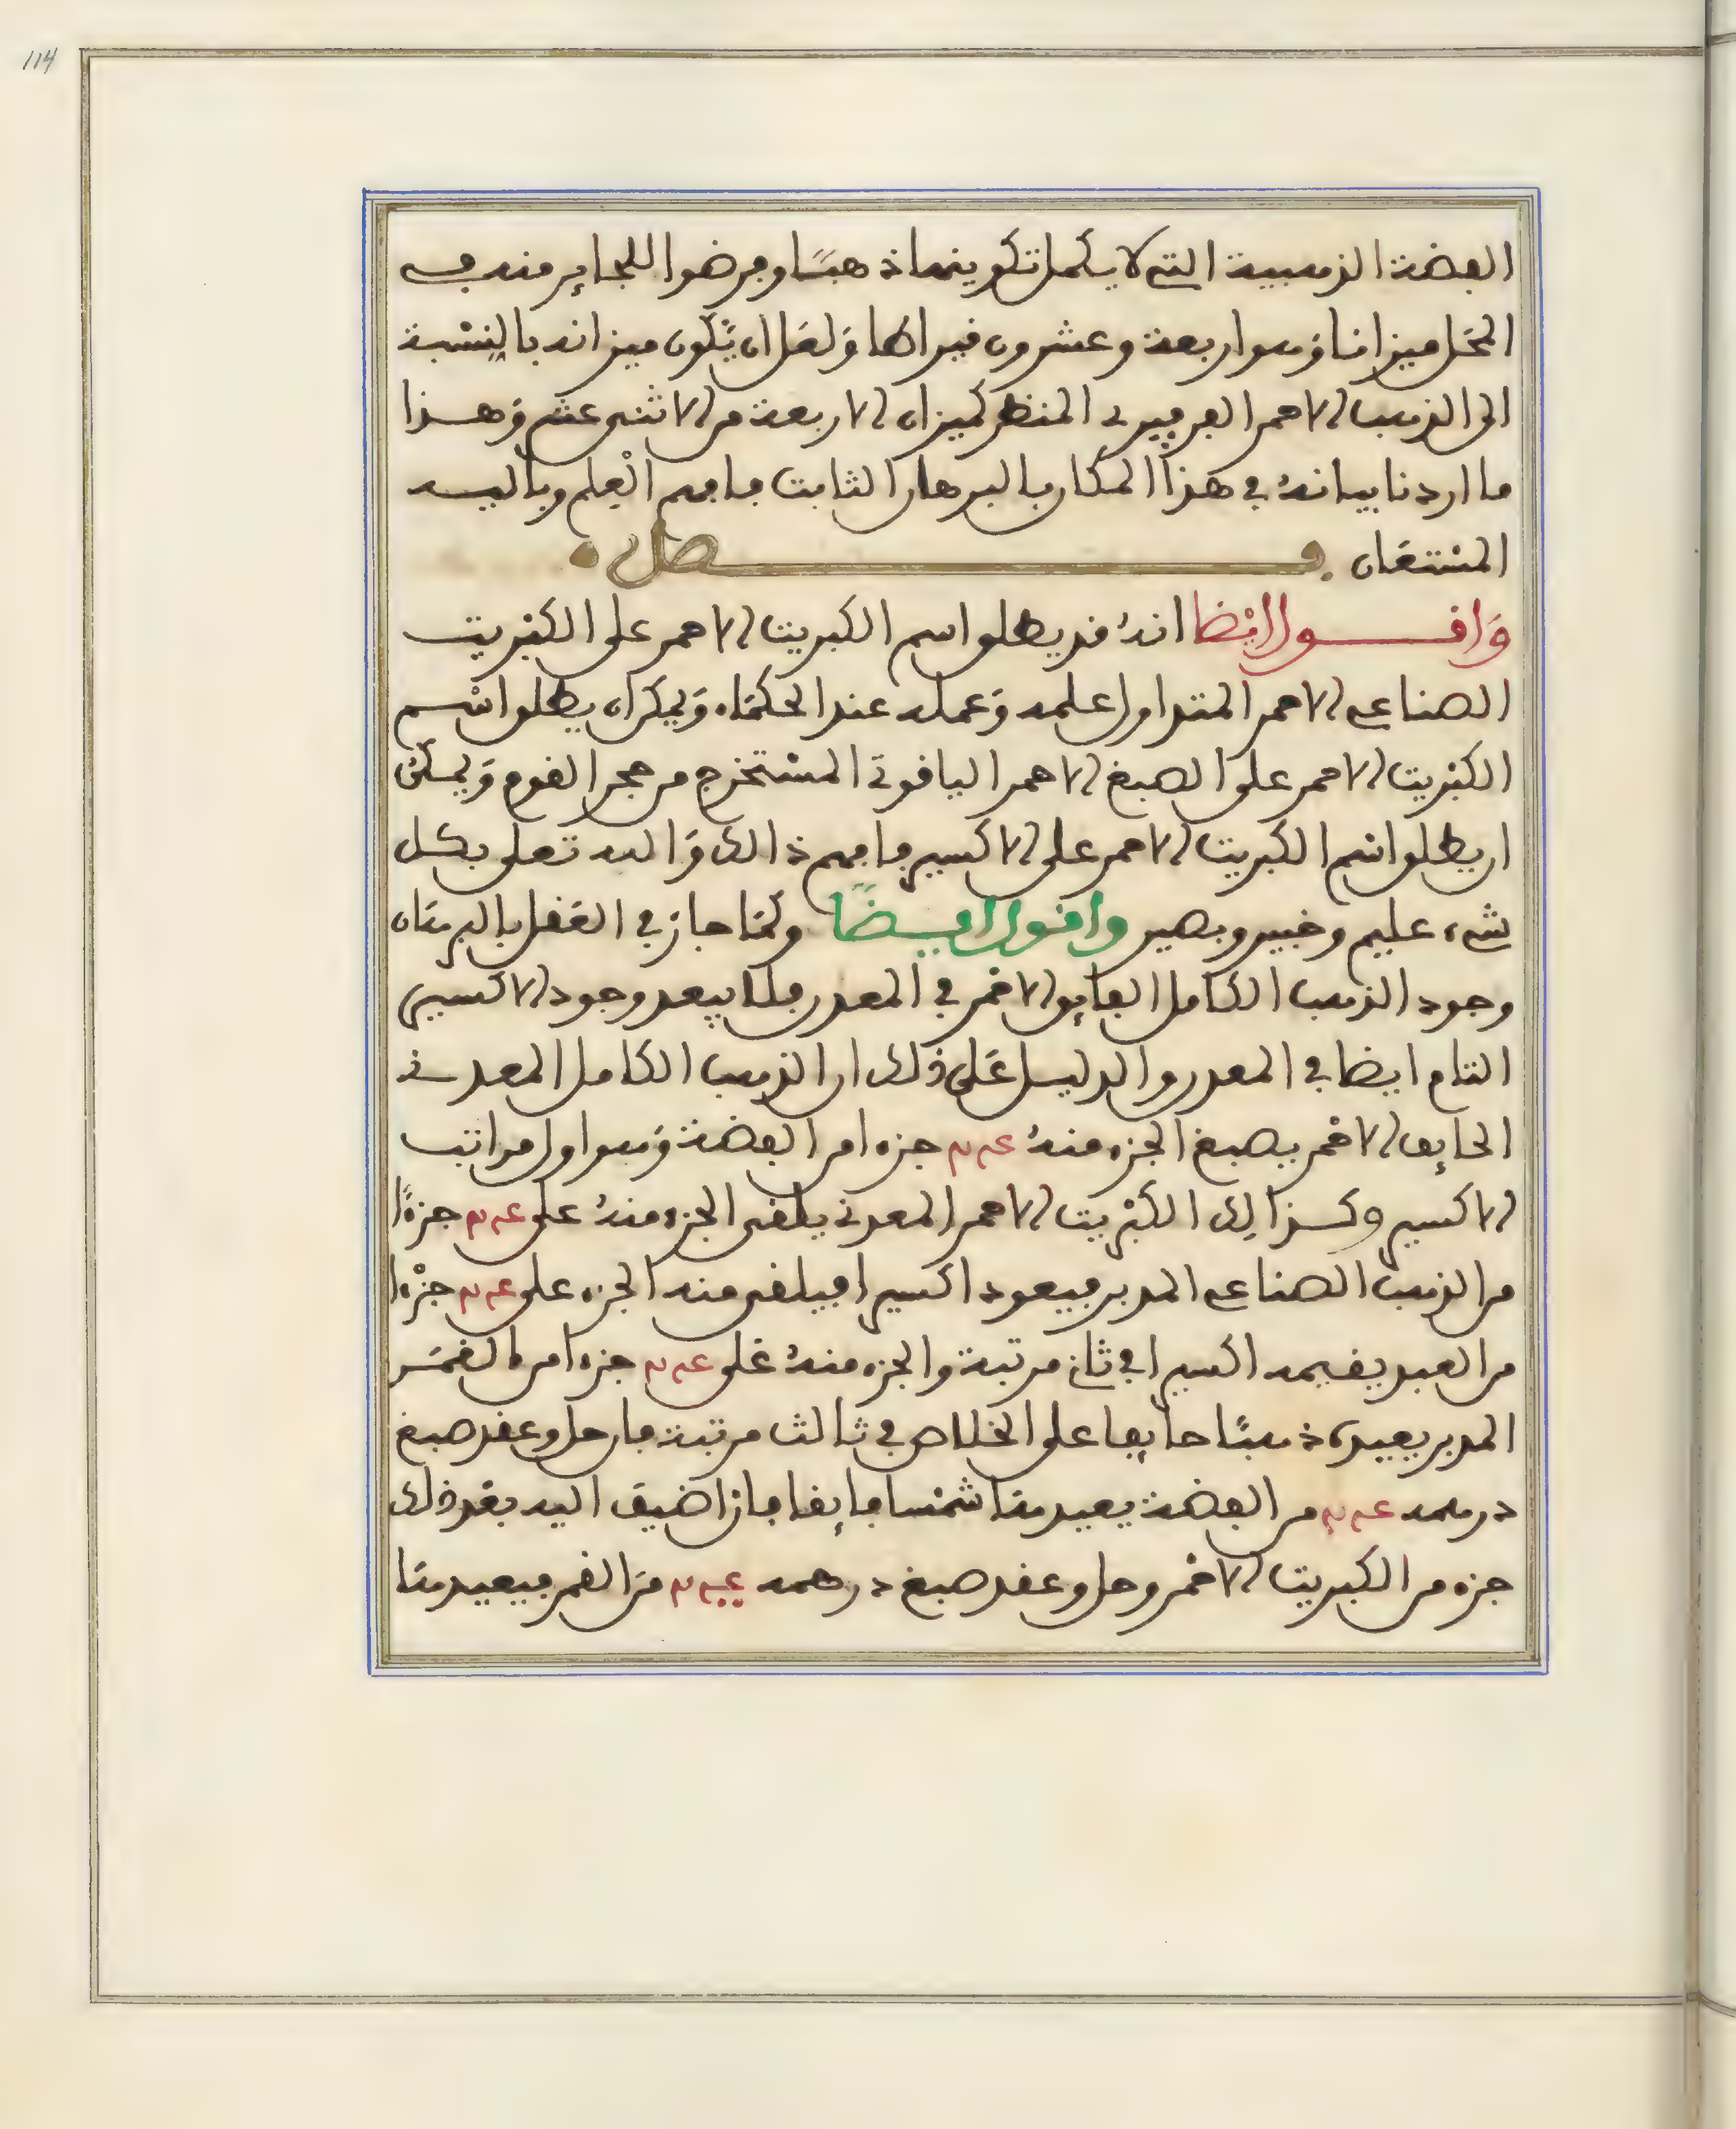 114
الفضة الذهبية التي لا يكمل تكوينها ذهبًا وفرضوا للجابر منه في
الخل ميزانا وَهو اربعة وعشرون قيراطا وَلعل ان يَّكون ميزانه بالنِسْبة
الى الذهب الاحمر الفرفيري المنظر كميزان الاربعة من الاثنى عشر وَهـذا
ما اردنا بيانهُ في هذا المكان بالبرهان الثابت فافهم الْعِلم وبالله
المسْتعَان فـــصل
وَاقـــول ايْضا انهُ قد يطلق اسم الكبريت الاحمر على الكبْريت
الصناعي الاحمر المتداول علمه وَعمله عند الحكمَاء وَيمكن ان يطلق اسْم
الكبْريت الاحمر على الصبغ الاحمر الياقوتي المسْتخرج من حجر القوم وَيمكنُ
ان يطلق اسْم الكبريت الاحمر على الاكسير فافهم ذالك وَالله تعلى بكل
شيء عليم وخبير وبصير واقول ايـضًا ولمَا جاز في العَقل بالبرهَان
وجود الذهب الكامل الفايق الاحمر في المعدن فلا يبعد وجود الاكسير
التام ايضا في المعدن والدليل عَلى ذلك ان الذهب الكامل المعدني
الحايف الاحمر يصبغ الجزء منهُ جزءا من الفضة وَهو اول مراتب
الاكسير وكـذالِك الكبْريت الاحمر المعدني يلقى الجزء منهُ على جزءًا
من الذهب الصناعي المدبر فيعود اكسيرا فيلقى منه الجزء على جزْءا
من العبد يقيمه اكسيرا في ثاني مرتبة والجزء منهُ عَلى جزءا من القمَر
المدبر يعيده ذهبًا حايفا على الخلاص في ثالث مرتبة فان حل وعقد صبغ
درهمه من الفضة يعيدهَا شمْسا فايقا فان اضيف اليه بعْد ذلك
جزء من الكبريت الاحمر وحل وعقد صبغ درهمه منَ القمر فيعيدهَا